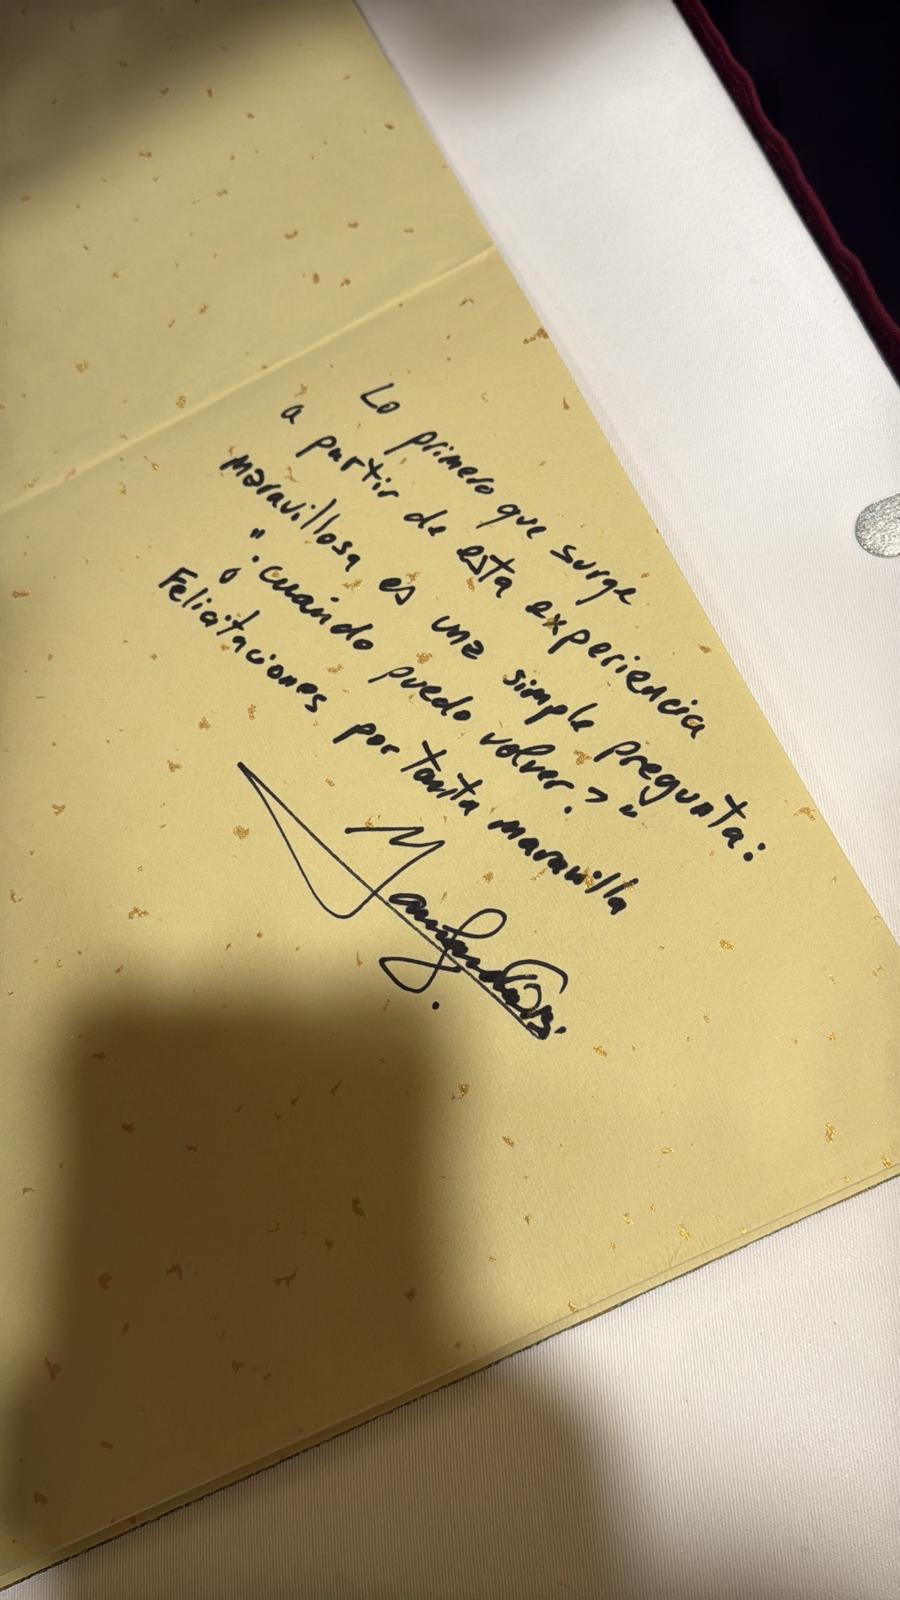 Lo primero que surge
a partir de esta experiencia
maravillosa es una simple pregunta:
"¿cuándo puedo volver?"
Felicitaciones por tanta maravilla